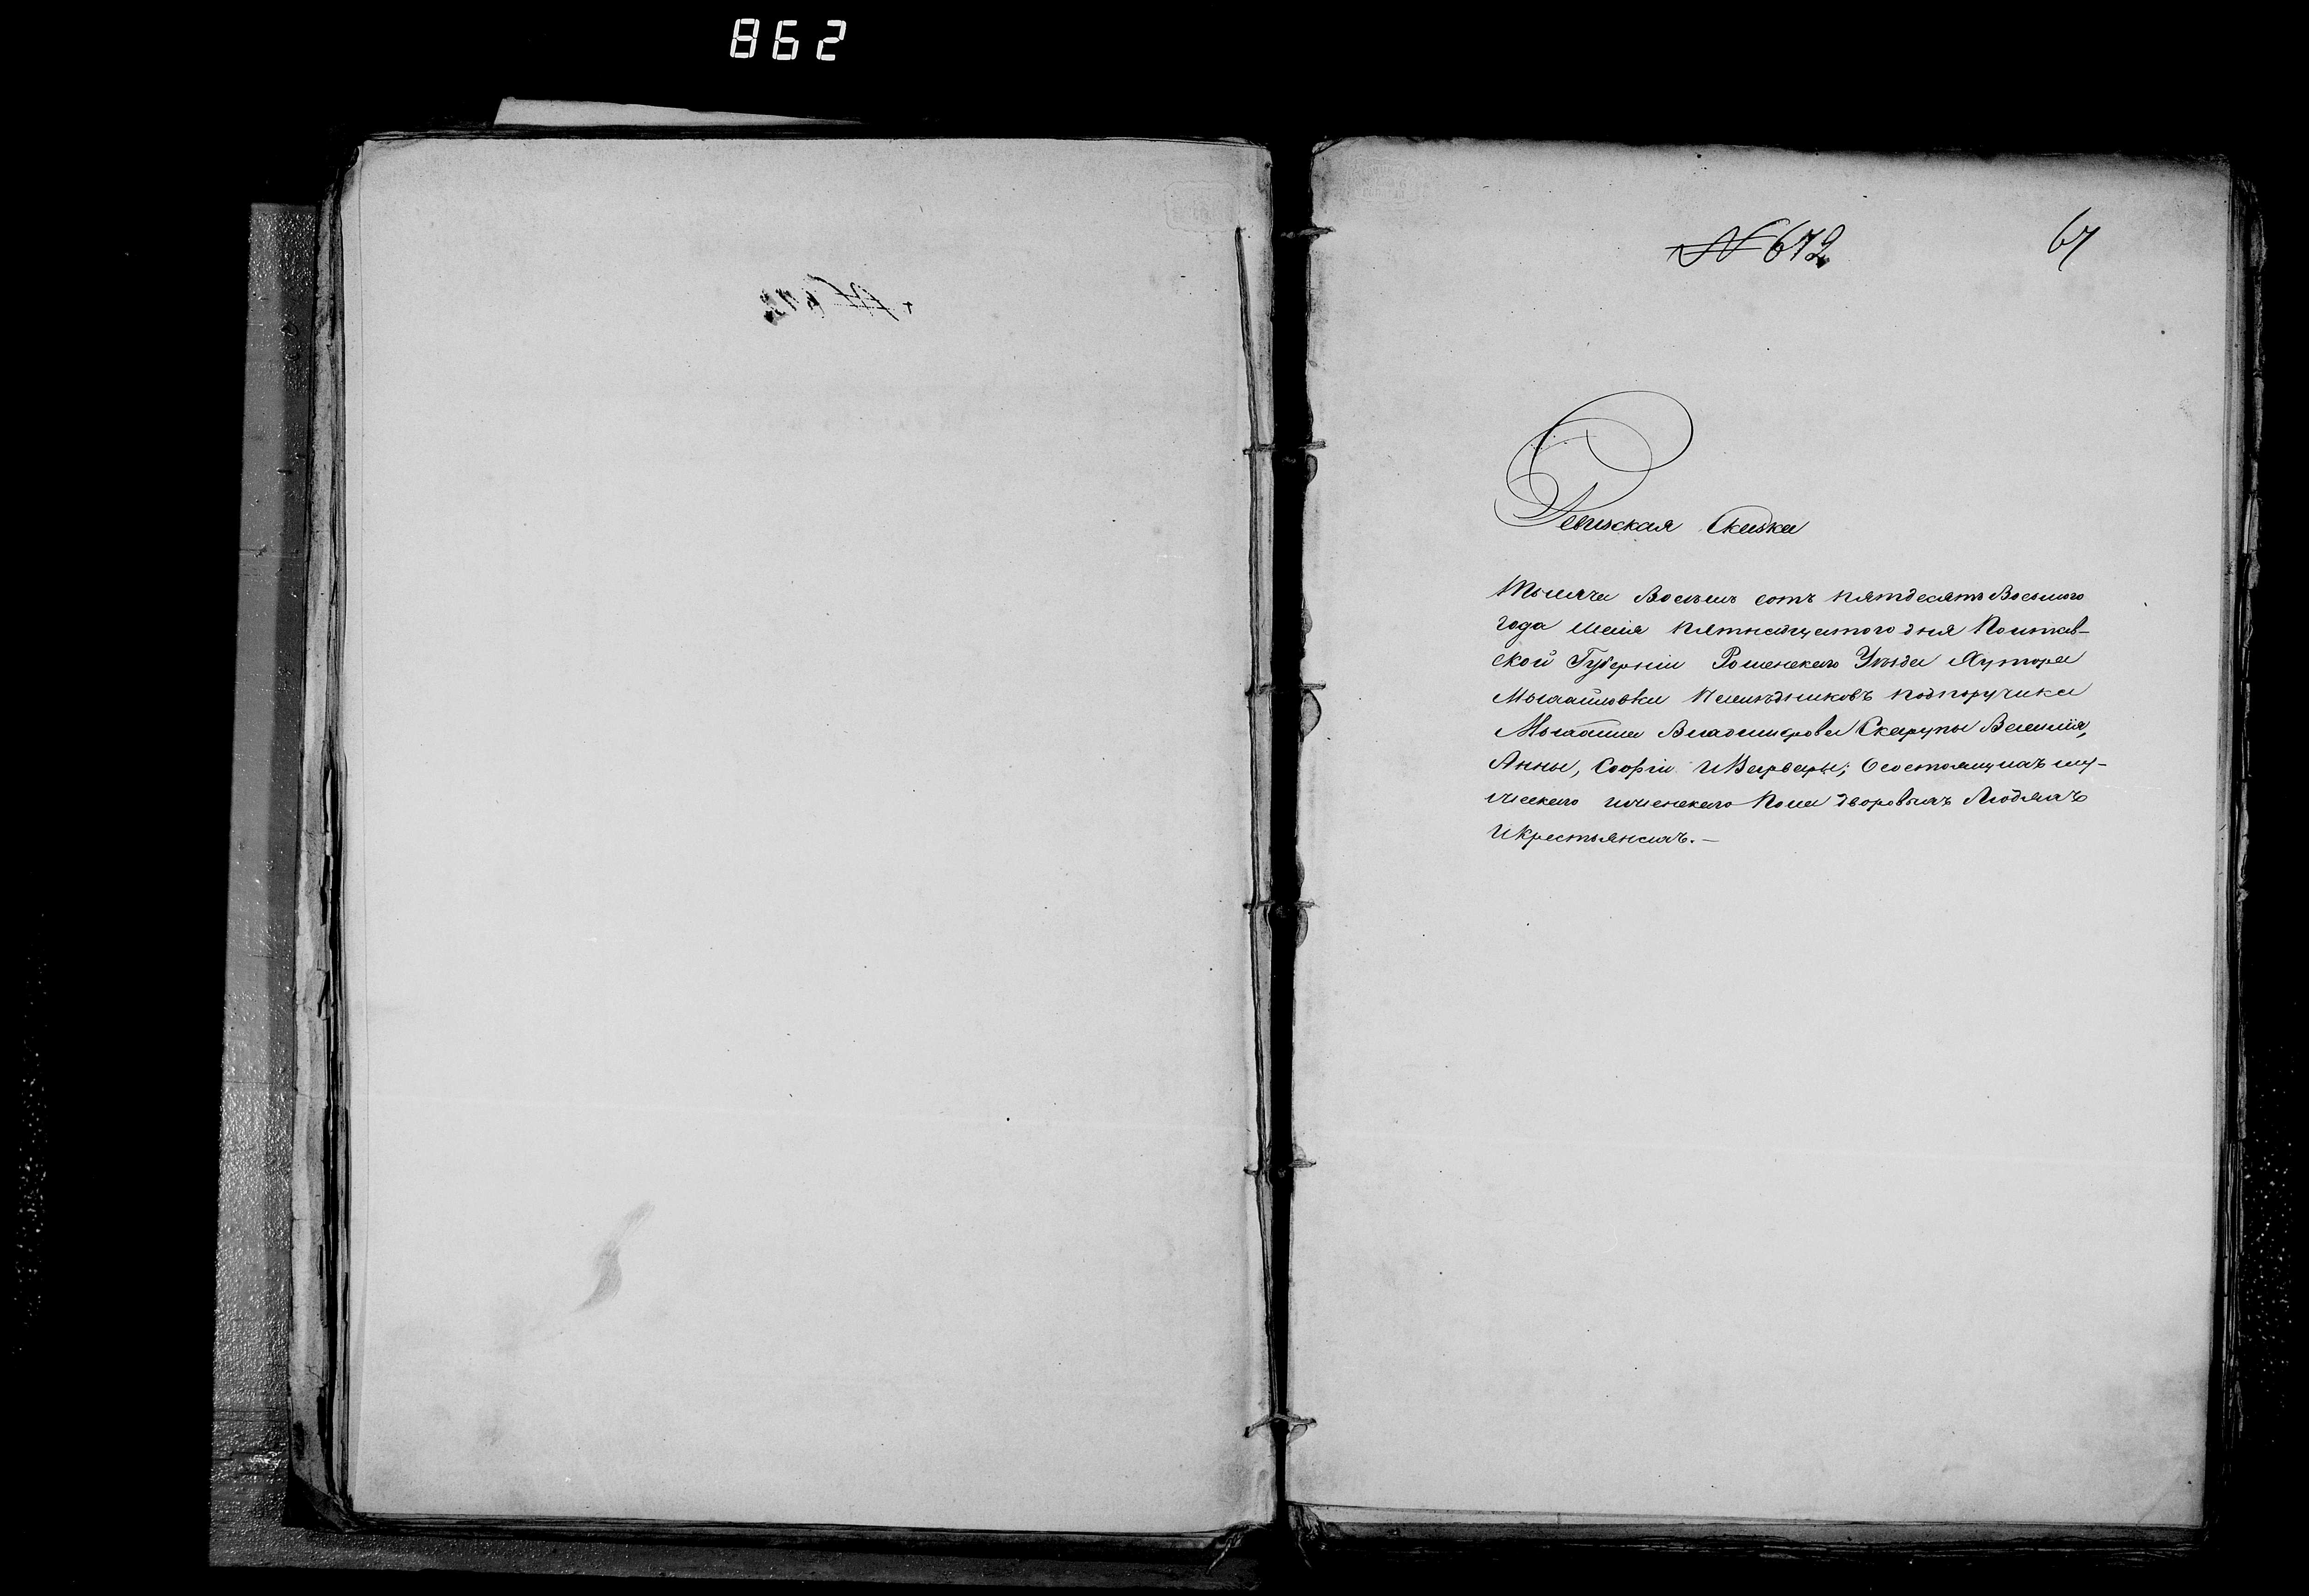 862
№ 672
67
Ревизская Сказка
Тысяча Восемь сотъ пятдесятъ Восьмого
года маія пятнадцатого дня Полтав-
ской Губерніи Роменскаго Уезда Хутора
Наслѣдниковъ подпоручика
Владимірова Скарупы Василія,
Анны, Софіи и Варвары; О состоящихъ му-
жескаго и женскаго пола дворовыхъ Людяхъ
и Крестьянахъ. —